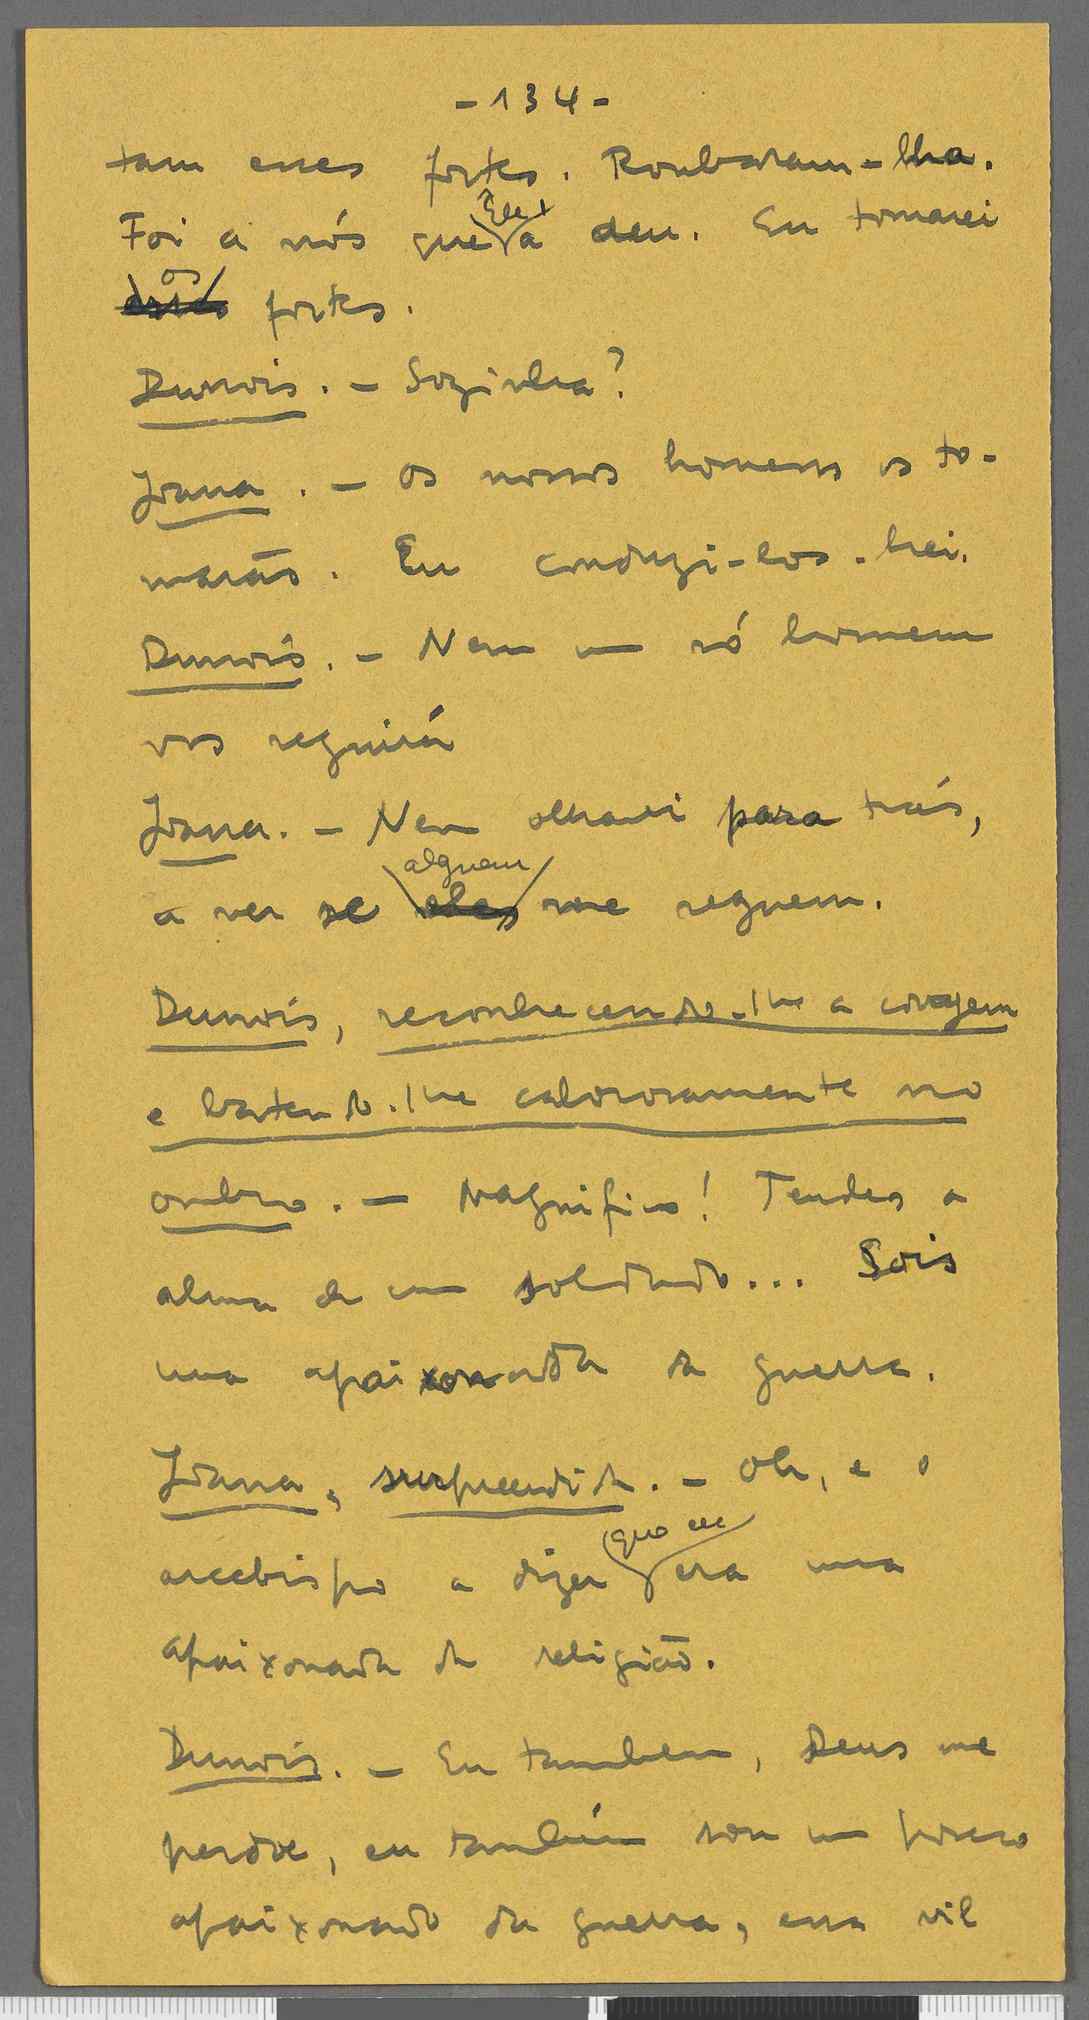 - 134 -
tam esses fortes. Roubaram-lha.
Foi a nós que Ele a deu. Eu tomarei
os fortes.
Dunois. - Sozinha?
Joana. - Os nossos homens os to-
marão. Eu conduzi-los-hei.
Dunois. - Nem um só homem
vos seguirá
Joana. - Nem olharei para trás,
a ver se alguem me seguem.
Dunois, reconhecendo-lhe a coragem
e batendo-lhe calorosamente no
ombro. - Magnifico! Tendes a
alma de um soldado... Sois
uma apaixonada da guerra.
Joana, surpreendida. - Oh, e o
arcebispo a dizer que eu era uma
apaixonada da religião.
Dunois. - Eu tambem, Deus me
perdoe, eu também sou um pouco
apaixonado da guerra, essa vil